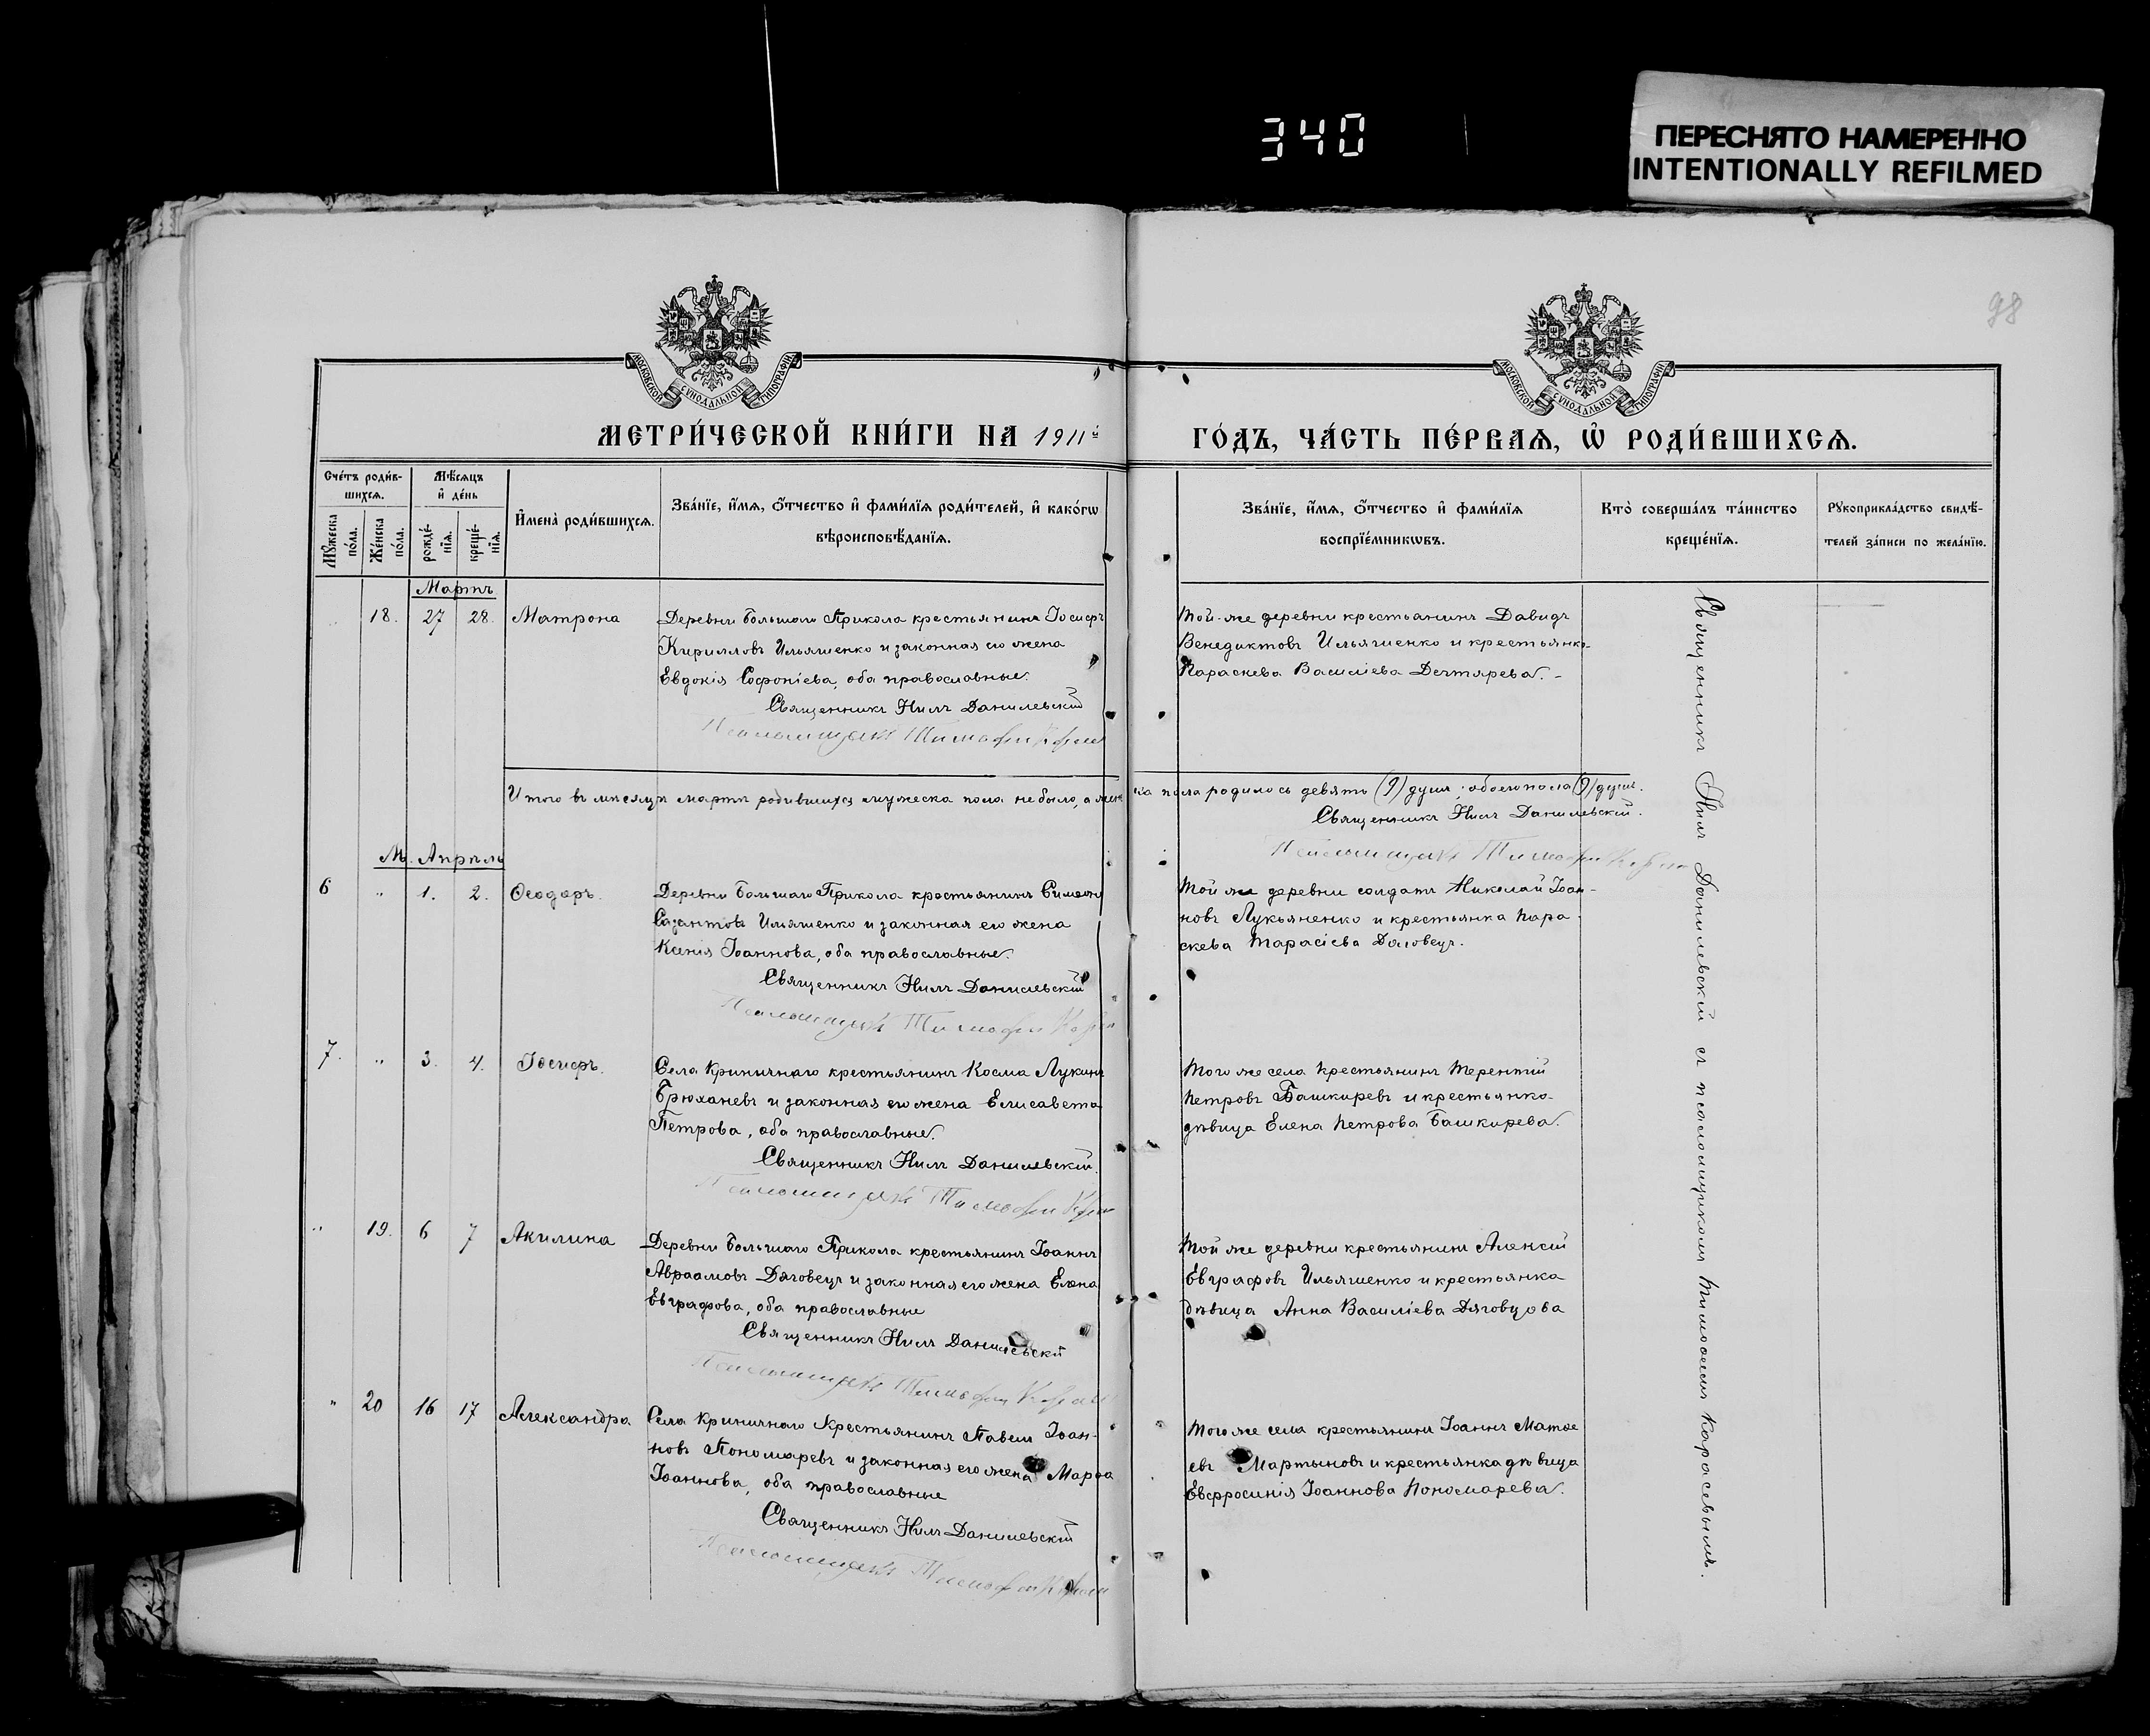 340
ПЕРЕСНЯТО НАМЕРЕННО
INTENTIONALLY REFILMED
98
МОСКОВСКОЙ СУНОДАЛЬНОЙ ТИПОГРАФІИ
МОСКОВСКОЙ СУНОДАЛЬНОЙ ТИПОГРАФІИ
МЕТРИ́ЧЕСКОЙ КНИ́ГИ НА 1911й
ГО́ДЪ, ЧА́СТЬ ПЕ́РВАѦ, Ѡ҆ РОДИ́ВШИХСѦ.
Сче́тъ роди́в-
шихсѧ.
Мѣ́сѧцъ
и҆ де́нь
Мꙋ́жеска
по́ла.
Же́нска
по́ла.
рожде́-
нїѧ.
креще́-
нїѧ.
И҆мена̀ роди́вшихсѧ.
Зва́нїе, и҆́мѧ, ѻ҆́тчество и҆ фами́лїѧ роди́телей, и҆ како́гѡ
вѣроисповѣ́данїѧ.
Зва́нїе, и҆́мѧ, ѻ҆́тчество и҆ фами́лїѧ
воспрїе́мникѡвъ.
Кто̀ соверша́лъ та́инство
креще́нїѧ.
Рꙋкоприкла́дство свидѣ́-
телей за́писи по жела́нїю.
Мартъ
18. 27 28. Матрона
Деревни Большого Прикола крестьянинъ Іосифъ
Кирилловъ Ильяшенко и законная его жена
Евдокія Софоніева, оба православные.
Священникъ Нилъ Данилевскій
Псаломщикъ Тимофей
Той-же деревни крестьянинъ Давидъ
Венедиктовъ Ильяшенко и крестьянка
Параскева Василіева Дегтярева. -
Итого въ мѣсяцѣ мартѣ родившихся мужеска пола не было, а женска пола родилось девять (9) душъ; обоего пола (9) душъ.
Священникъ Нилъ Данилевскій.
Псаломщикъ Тимофей
М. Апрѣль
6 " 1. 2. Ѳеодоръ.
Деревни Большаго Прикола крестьянинъ Симеонъ
Ильяшенко и законная его жена
Ксенія Іоаннова, оба православные.
Священникъ Нилъ Данилевскій
Псаломщикъ Тимофей
Той же деревни солдатъ Николай Іоан-
новъ Лукьяненко и крестьянка Пара-
скева Тарасіева Дяговецъ.
7. " 3. 4. Іосифъ.
Села Криничнаго крестьянинъ Косма Лукинъ
Брюханевъ и законная его жена Елисавета
Петрова, оба православные.
Священникъ Нилъ Данилевскій.
Псаломщикъ Тимофей
Того же села крестьянинъ Терентій
Петровъ Башкиревъ и крестьянка-
дѣвица Елена Петрова Башкирева.
" 19. 6 7 Акилина
Деревни Большаго Прикола крестьянинъ Іоаннъ
Авраамовъ Дяговецъ и законная его жена Елена
Евграфова, оба православные
Священникъ Нилъ Данилевскій
Псаломщикъ Тимофей
Той же деревни крестьянинъ Алексій
Евграфовъ Ильяшенко и крестьянка
дѣвица Анна Василіева Дяговцова
" 20 16 17 Александра
Села Криничнаго крестьянинъ Павелъ Іоан-
новъ Пономаревъ и законная его жена Марѳа
Іоаннова, оба православные
Священникъ Нилъ Данилевскій
Псаломщикъ Тимофей
Того же села крестьянинъ Іоаннъ Матѳе
евъ Мартыновъ и крестьянка дѣвица
Евфросинія Іоаннова Пономарева.
Священникъ Нилъ Данилевскій съ псаломщикомъ Тимоѳеемъ Карасевымъ.